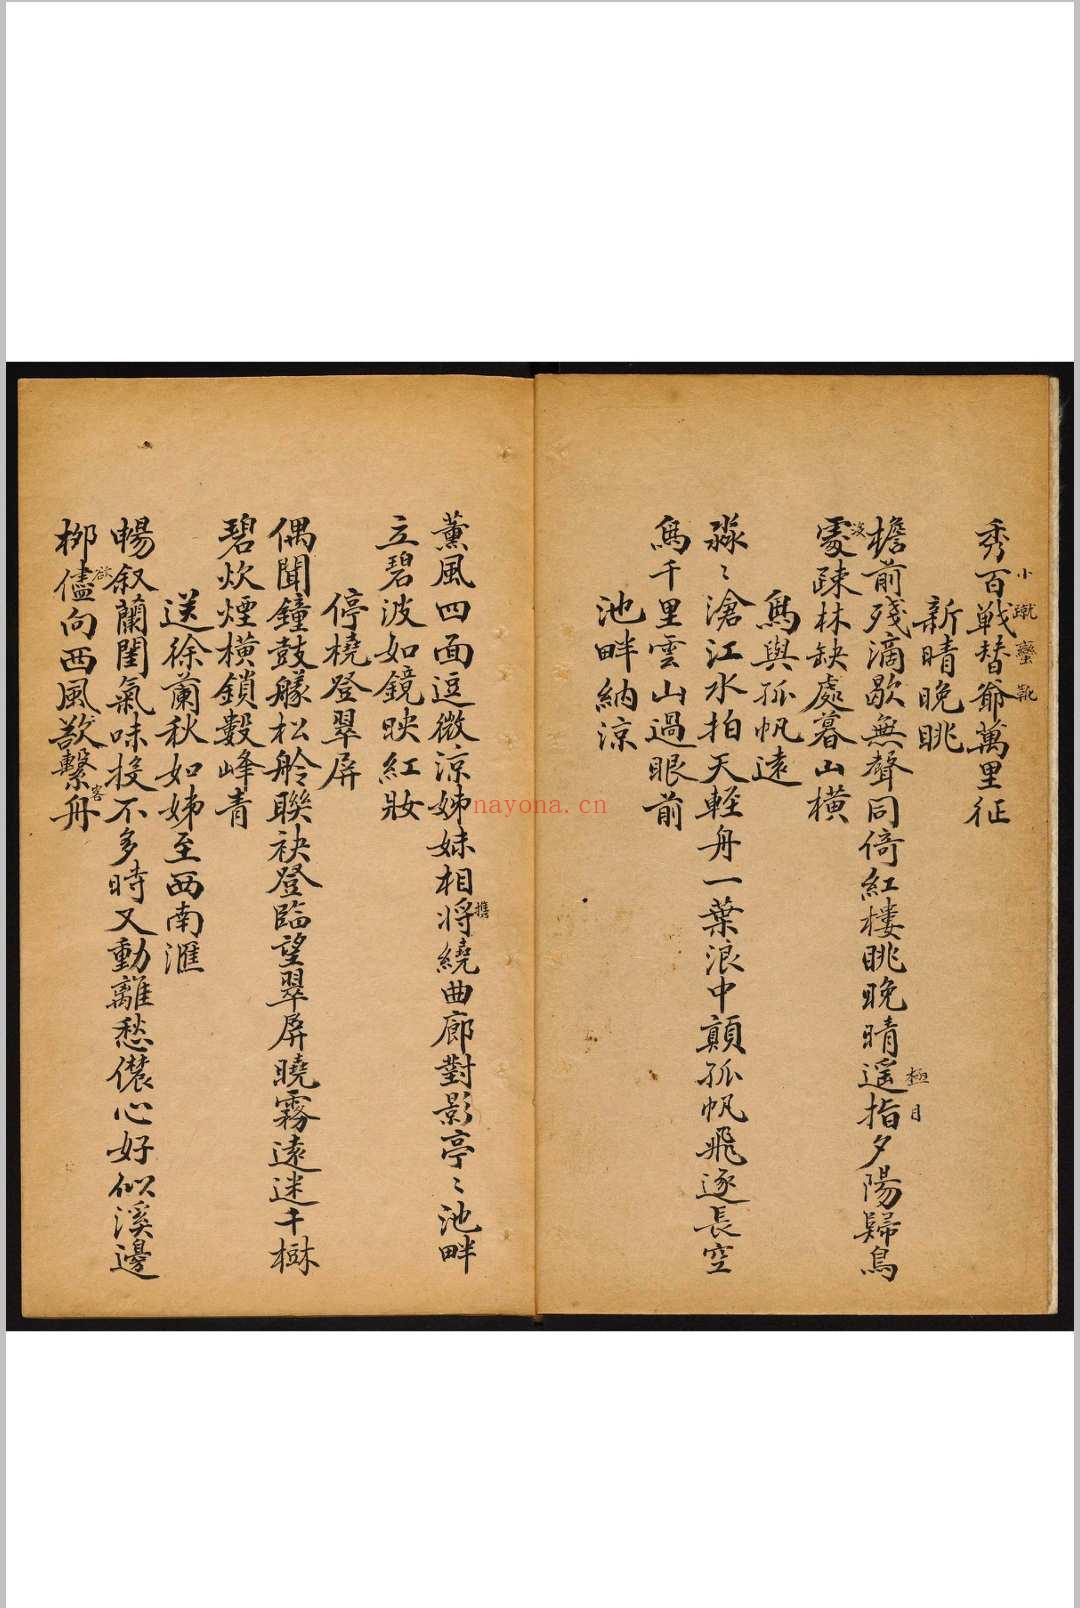 秀百戰替爺萬里征
小蹴蠻靴
新晴晚眺
檐前殘滴歇無聲同倚紅樓眺晚晴遙指夕陽歸鳥
極目
沒
處疎林缺處暮山橫
鳥與孤帆遠
淼〻滄江水拍天輕舟一葉浪中顛孤帆飛逐長空
鳥千里雲山過眼前
池畔納涼
薰風四面逗微涼姊妹相將繞曲廊對影亭〻池畔
攜
立碧波如鏡映紅妝
停橈登翠屏
偶聞鐘鼓艤松舲聯袂登臨望翠屏曉霧遠迷千樹
碧炊煙橫鎖數峰青
送徐蘭秋如姊至西南滙
暢敘蘭閨氣味投不多時又動離愁儂心好似溪邊
柳儘向西風歎繫舟
欲
客
nayona.cn